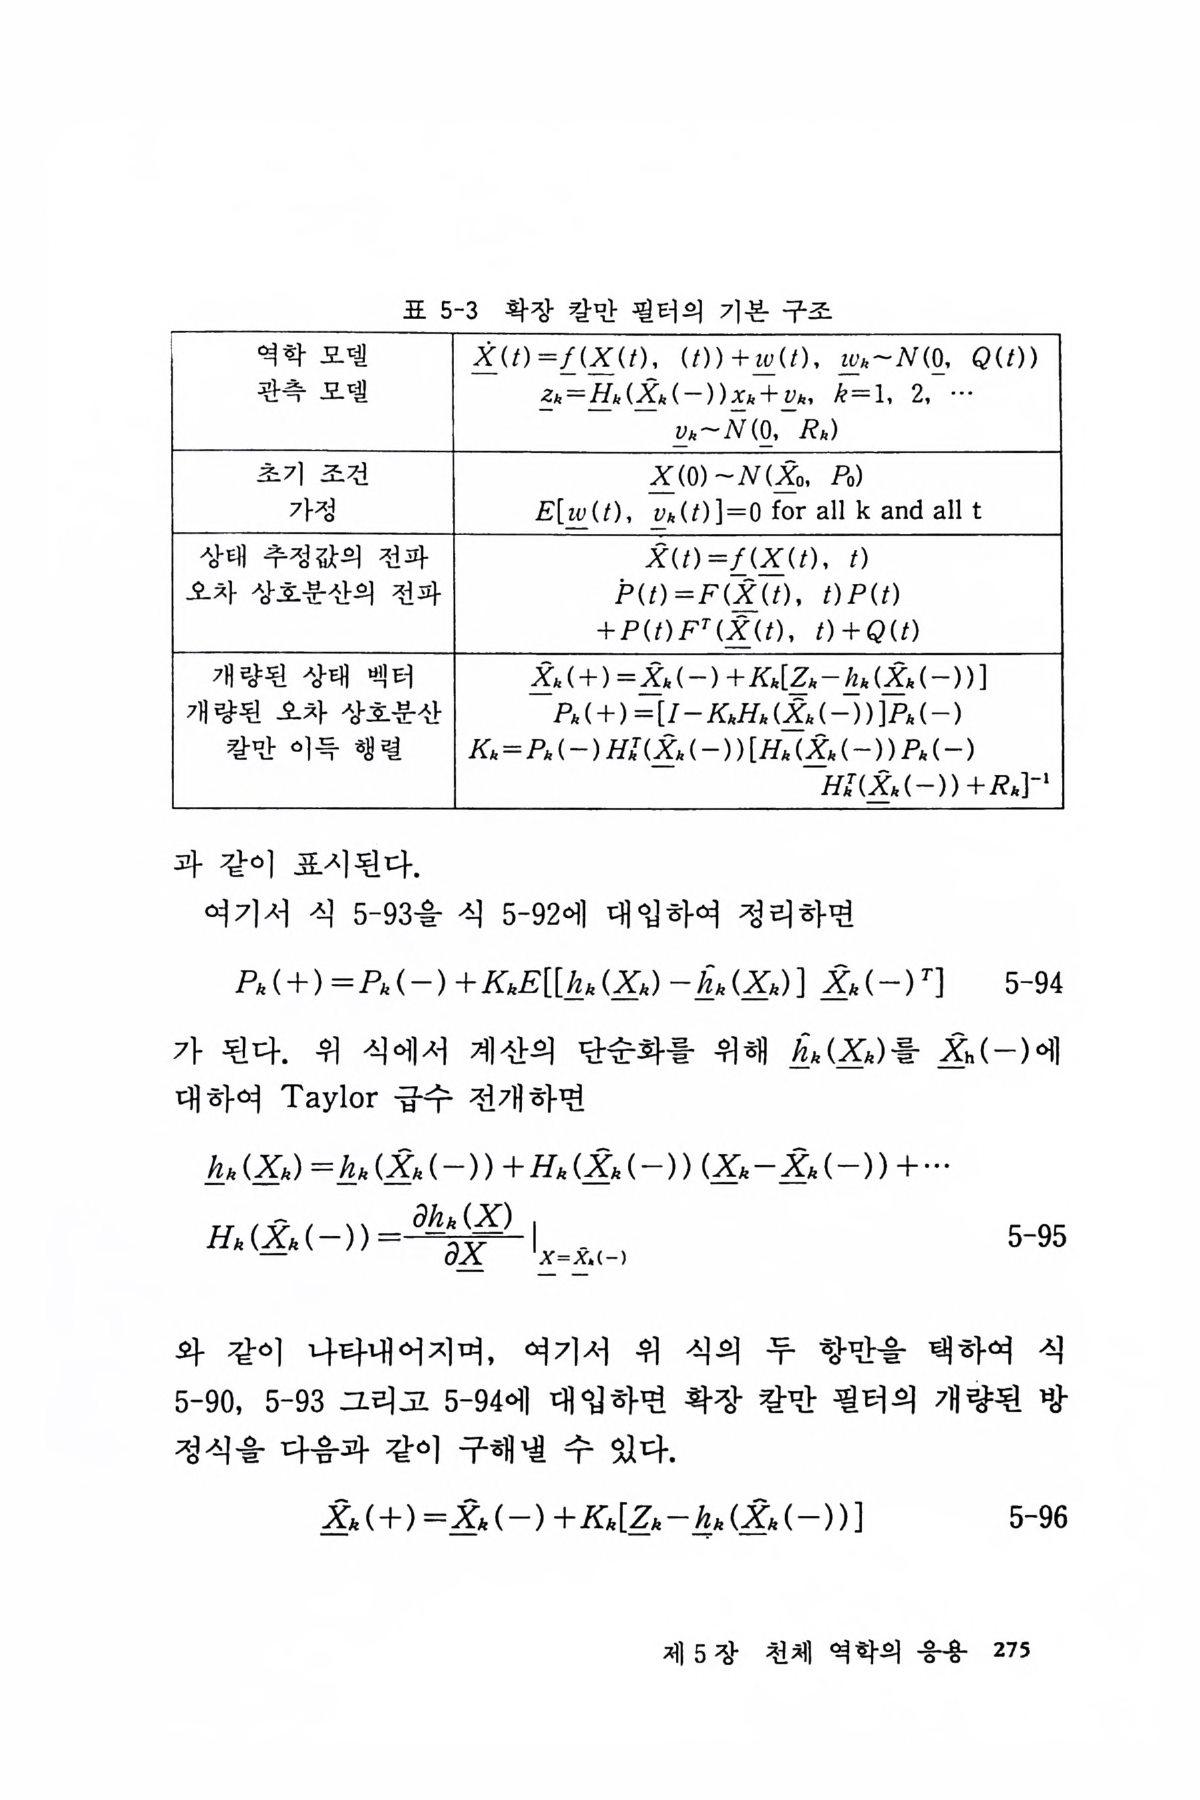 표 5-3 확장 칼만 필터의 기본 구조
역학 모델 Ẋ(t)=f(X(t), (t))+w(t), wₖ~N(0, Q(t))
관측 모델 zₖ=Hₖ(X̂ₖ(−))xₖ+vₖ, k=1, 2, …
vₖ~N(0, Rₖ)
초기 조건 X(0)~N(X̂₀, P₀)
가정 E[w(t), vₖ(t)]=0 for all k and all t
상태 추정값의 전파 X̂(t)=f(X(t), t)
오차 상호분산의 전파 Ṗ(t)=F(X̂(t), t)P(t)
+P(t)Fᵀ(X̂(t), t)+Q(t)
개량된 상태 벡터 X̂ₖ(+)=X̂ₖ(−)+Kₖ[Zₖ−hₖ(X̂ₖ(−))]
개량된 오차 상호분산 Pₖ(+)=[I−KₖHₖ(X̂ₖ(−))]Pₖ(−)
칼만 이득 행렬 Kₖ=Pₖ(−)Hₖᵀ(X̂ₖ(−))[Hₖ(X̂ₖ(−))Pₖ(−)
Hₖᵀ(X̂ₖ(−))+Rₖ]⁻¹
과 같이 표시된다.
여기서 식 5-93을 식 5-92에 대입하여 정리하면
Pₖ(+)=Pₖ(−)+KₖE[[hₖ(Xₖ)−ĥₖ(Xₖ)] X̂ₖ(−)ᵀ] 5-94
가 된다. 위 식에서 계산의 단순화를 위해 ĥₖ(Xₖ)를 X̂ₕ(−)에
대하여 Taylor 급수 전개하면
hₖ(Xₖ)=hₖ(X̂ₖ(−))+Hₖ(X̂ₖ(−))(Xₖ−X̂ₖ(−))+⋯
Hₖ(X̂ₖ(−))=∂hₖ(X)/∂X |X=X̂ₖ(−) 5-95
와 같이 나타내어지며, 여기서 위 식의 두 항만을 택하여 식
5-90, 5-93 그리고 5-94에 대입하면 확장 칼만 필터의 개량된 방
정식을 다음과 같이 구해낼 수 있다.
X̂ₖ(+)=X̂ₖ(−)+Kₖ[Zₖ−hₖ(X̂ₖ(−))] 5-96
제5장 천체 역학의 응용 275